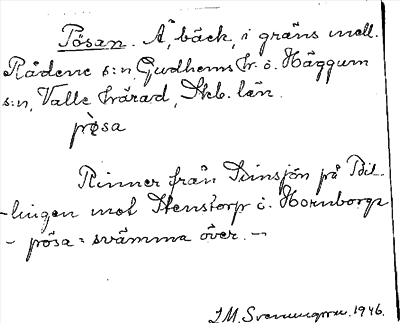 Pösan. Å, bäck, i gräns mell.
Rådene s:n, Gudhems hr. o. Häggum
s:n, Valle härad, Skb. län.
pö̀sa
Rinner från Simsjön på Bil-
lingen mot Stenstorp o. Hornborga
- pösa = svämma över. -
J.M. Svennungsson. 1946.